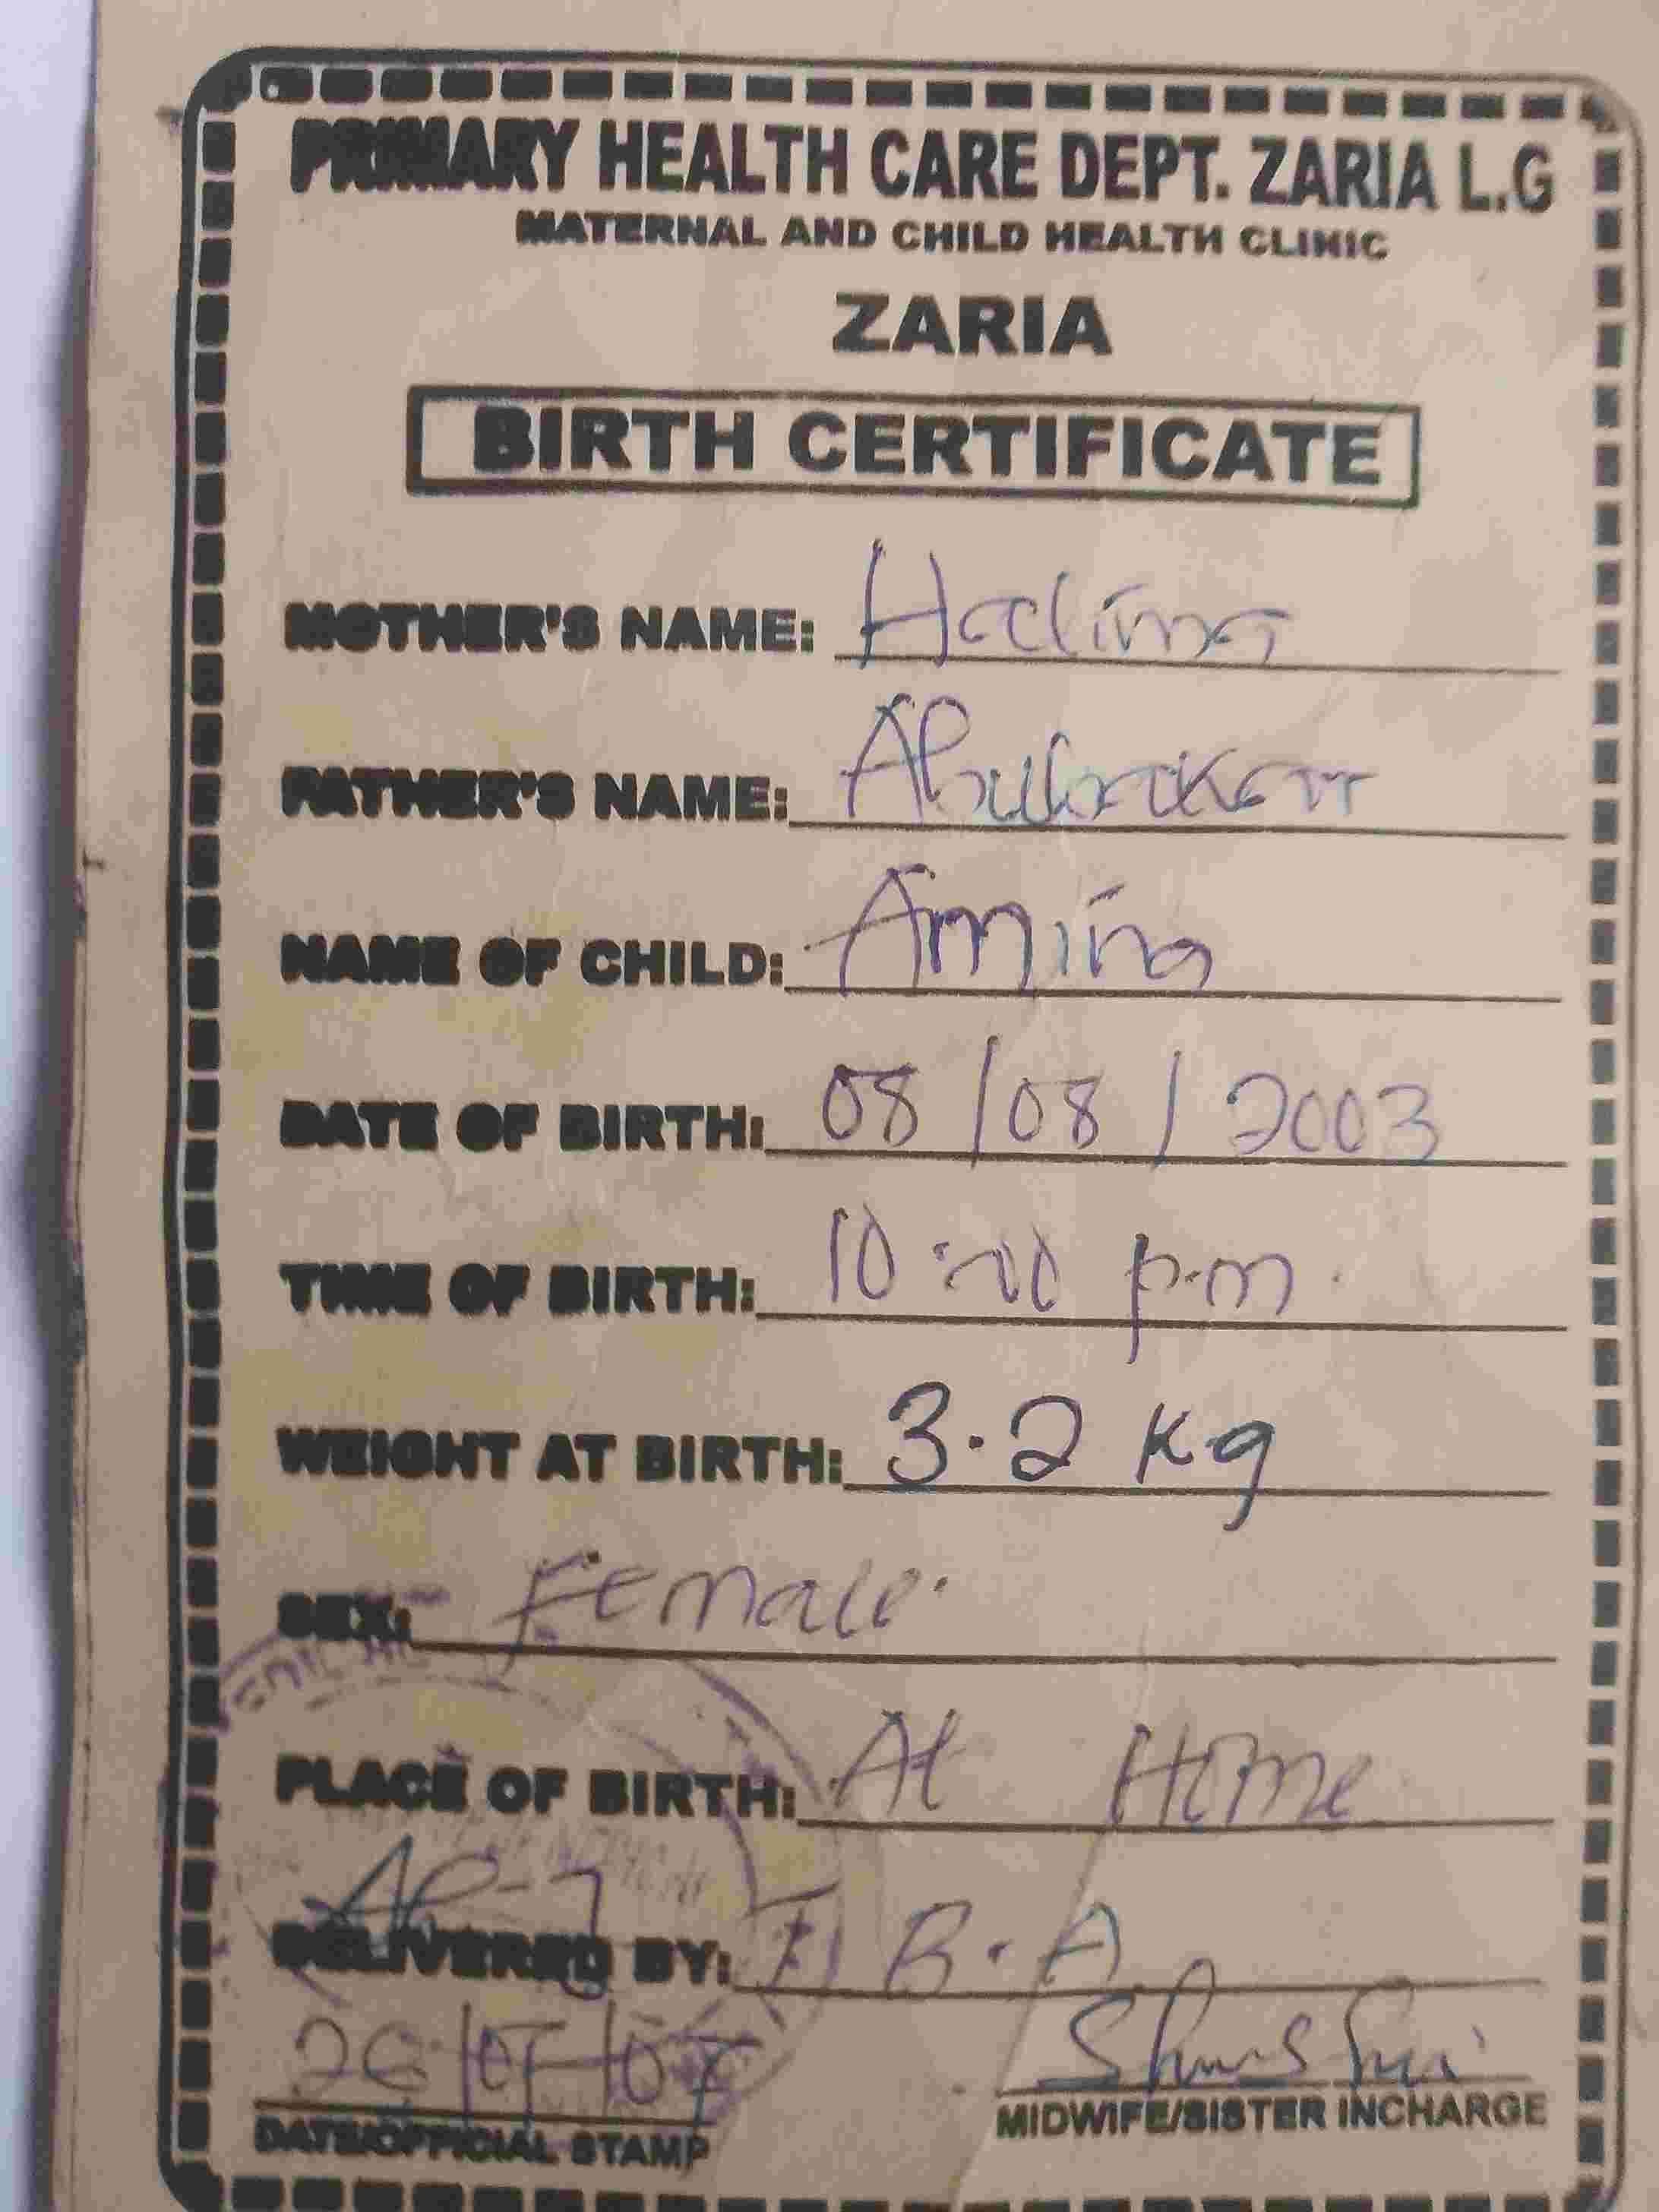 PRIMARY HEALTH CARE DEPT. ZARIA L.G
MATERNAL AND CHILD HEALTH CLINIC
ZARIA
BIRTH CERTIFICATE
MOTHER'S NAME: Halima
FATHER'S NAME: Abubakar
NAME OF CHILD: Amina
DATE OF BIRTH: 08/08/2003
TIME OF BIRTH: 10:00 p.m.
WEIGHT AT BIRTH: 3.2 kg
SEX: Female
PLACE OF BIRTH: At Home
DELIVERED BY: B.A
DATE/OFFICIAL STAMP
MIDWIFE/SISTER INCHARGE